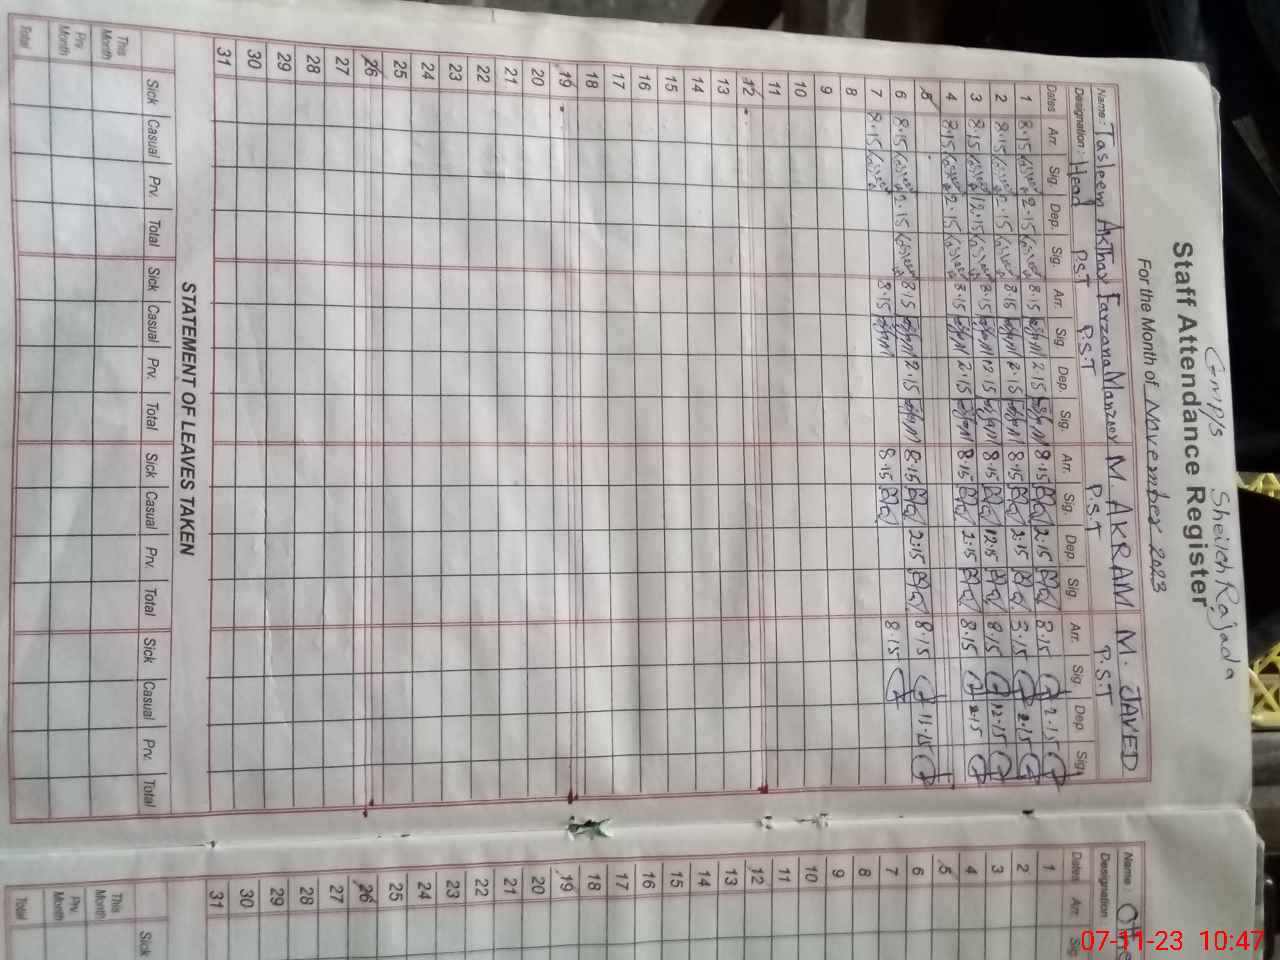 GMP/S Sheikh Rajada
Staff Attendance Register
For the Month of November 2023
Name: Tasleem Akthar Farzana Manzoor M. AKRAM M. JAVED
Designation: Head P.S.T P.S.T P.S.T P.S.T
Dates Arr. Sig. Dep. Sig. Arr. Sig. Dep. Sig. Arr. Sig. Dep. Sig. Arr. Sig. Dep Sig.
1 8.15 2.15 8.15 2.15 8.15 2:15 8.15 2.15
2 8.15 2.15 8.15 2.15 8.15 2:15 8.15 2.15
3 8.15 12.15 8.15 12.15 8.15 12:15 8.15 12.15
4 8.15 2.15 8.15 2.15 8.15 2:15 8.15 2.15
5
6 8.15 2.15 8.15 2.15 8.15 2:15 8.15 11.15
7 8.15 8.15 8.15 8.15
8
9
10
11
12
13
14
15
16
17
18
19
20
21
22
23
24
25
26
27
28
29
30
31
STATEMENT OF LEAVES TAKEN
Sick Casual Prv. Total Sick Casual Prv. Total Sick Casual Prv. Total Sick Casual Prv. Total
This Month
Prv. Month
Total
Name:
Designation:
Dates Arr. Sig.
1
2
3
4
5
6
7
8
9
10
11
12
13
14
15
16
17
18
19
20
21
22
23
24
25
26
27
28
29
30
31
Sick
This Month
Prv. Month
Total
07-11-23 10:47